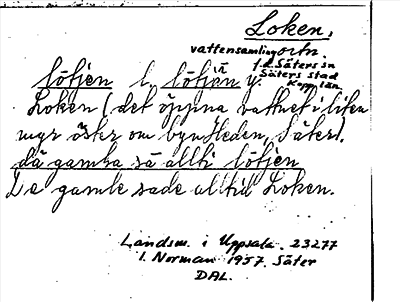 Loken,
vattensamling ortn.
f.d. Säters sn
Säters stad
Kopp. län.
lötjen l. lötjin y.
Loken (det öppna vattnet i liten
myr öster om byn Heden, Säter).
då gamba sä allti lötjen
De gamle sade alltid Loken.
Landsm. i Uppsala. 23277
I. Norman 1957. Säter
DAL.